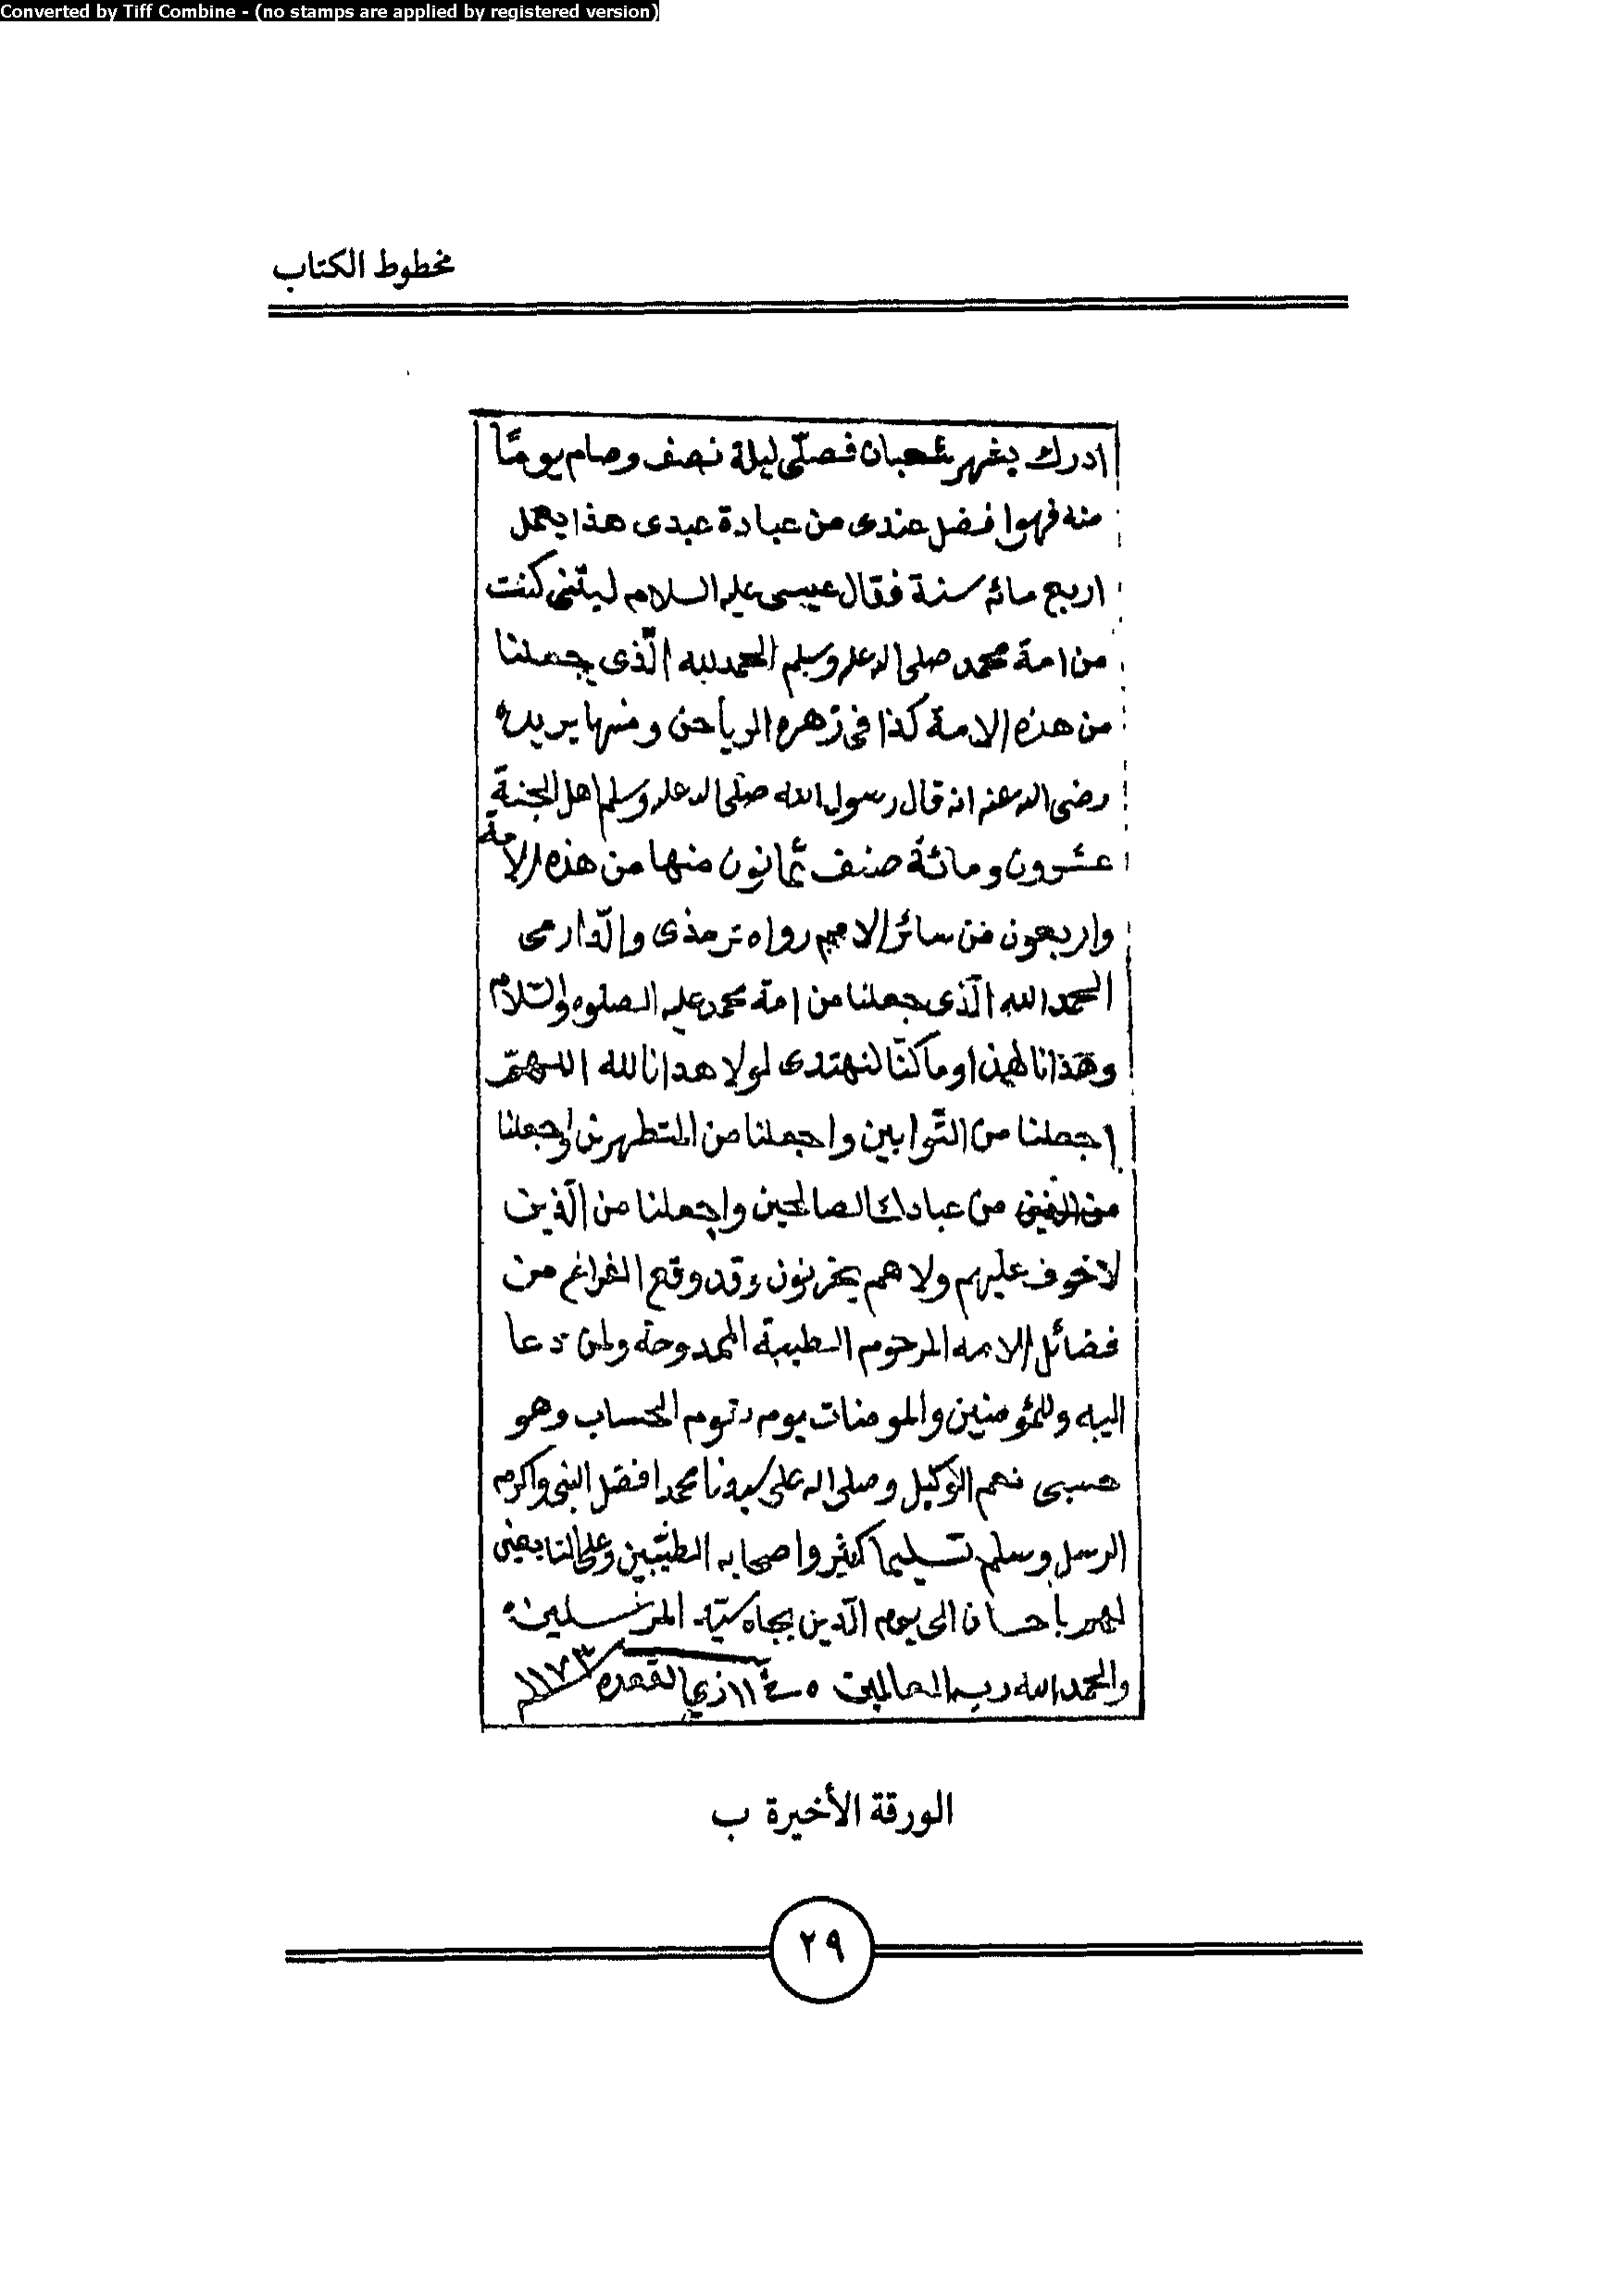 Converted by Tiff Combine - (no stamps are applied by registered version)
مخطوط الكتاب
ادرك بشهر شعبان فصلّى ليلة نصف وصام يومًا
منه فهوا فضل عندى من عبادة عبدى هذا بعمل
اربع مائه سنة فقال عيسى عليه السلام ليتنى كنت
من امة محمد صلى الله عليه وسلم الحمد لله الّذى جعلنا
من هذه الامة كذا فى زهره الرياحن ومنها بريده
رضى الله عنه انه قال رسول الله صلى الله عليه وسلم اهل الجنة
عشرون ومائة صنف ثمانون منها من هذه الامة
واربعون من سائر الامم رواه ترمذى والدّارمى
الحمد الله الّذى جعلنا من امة محمد عليه الصلوه والسّلام
وهذانا لهذا وما كنّا لنهتدى لولا هدانا لله اللهمّ
اجعلنا من التّوابين واجعلنا من المتطهرين واجعلنا
من عبادك الصالحين واجعلنا من الّذين
لا خوف عليهم ولا هم يحزنون وقد وقع الفراغ من
فضائل الامه المرحوم الطيبة الممدوحة ولمن دعا
اليه وللمؤمنين والمومنات يوم تقوم الحساب وهو
حسبى نعم الوكيل وصلى الله على سيدنا محمد افضل النبى واكرم
الرسل وسلم تسليما كثير واصحابه الطيّبين وعلى التابعين
لهم باحسان الى يوم الدّين بجاه سيّد المرسلين
والحمد الله رب العالمين ١١ ذي القعده ١١٧٣
الورقة الأخيرة ب
٢٩